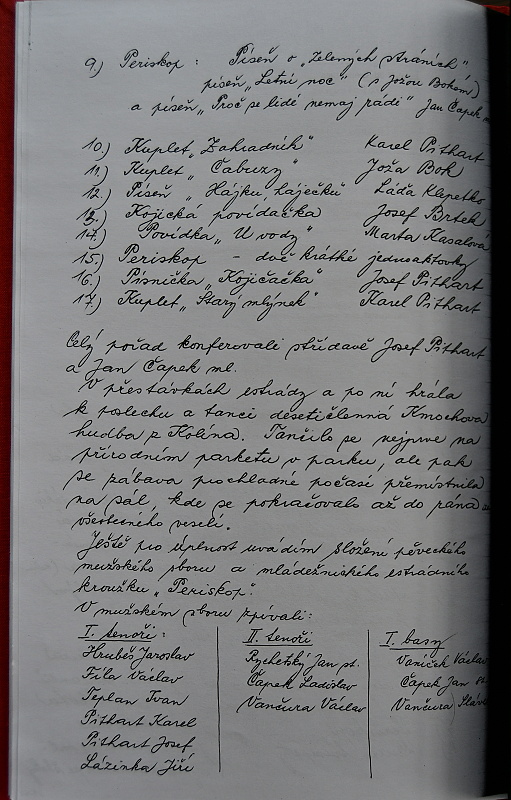 9.) Periskop : Píseň o „Zelených stráních"
píseň „Letní noc" (s Jožou Bohém)
a píseň „Proč se lidé nemaj rádi" Jan Čapek
10.) Kuplet „Zahradník" Karel Pithart
11.) Kuplet „Čabuzy" Joža Bok
12.) Píseň „Hájku, háječku" Láďa Klepetko
13.) Kojická povídačka Josef Brtek
14.) Povídka „U vody" Marta Kasalová
15.) Periskop - dvě krátké jednoaktovky
16.) Písnička „Kojičačka" Josef Pithart
17.) Kuplet „Starý mlýnek" Karel Pithart
Celý pořad konferovali střídavě Josef Pithart
a Jan Čapek ml.
V přestávkách estrády a po ní hrála
k poslechu a tanci desetičlenná Kmochova
hudba z Kolína. Tančilo se nejprve na
přírodním parketu v parku, ale pak
se zábava pro chladné počasí přemístnila
na sál, kde se pokračovalo až do rána za
všestranného veselí.
Ještě pro úplnost uvádím složení pěveckého
mužského sboru a mládežnického estrádního
kroužku „Periskop".
V mužském sboru zpívali:
I. tenoři: II. tenoři I. basy
Hruběš Jaroslav Rychetský Jan st. Vaníček Václav
Fila Václav Čapek Ladislav Čapek Jan st.
Teplan Ivan Vančura Václav Vančura Sláv
Pithart Karel
Pithart Josef
Lázinka Jiří